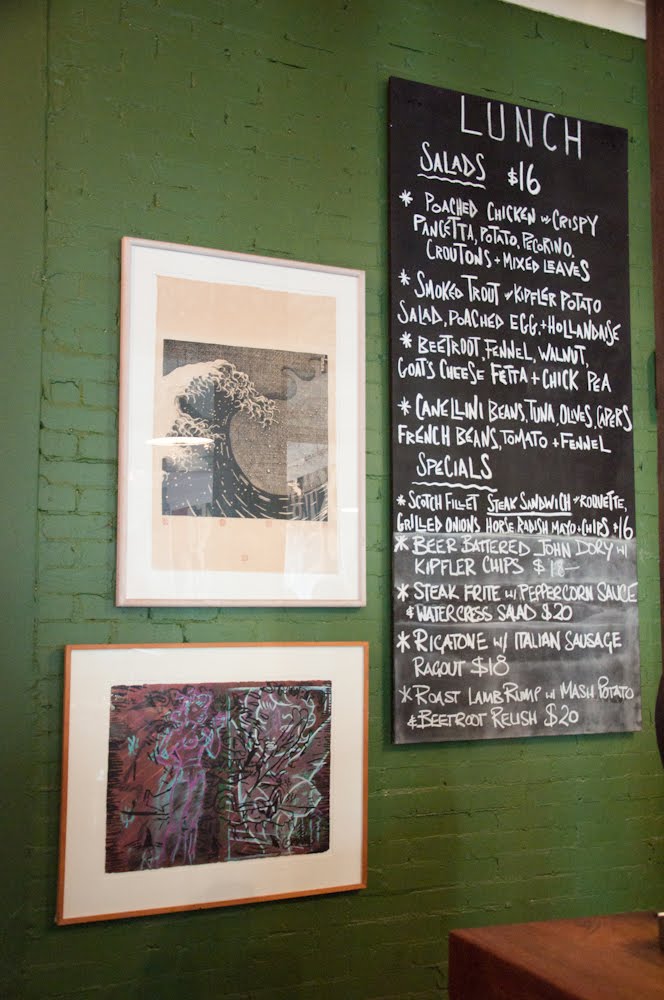 LUNCH
SALADS $16
* POACHED CHICKEN w CRISPY
PANCETTA, POTATO, PECORINO,
CROUTONS + MIXED LEAVES
* SMOKED TROUT w KIPFLER POTATO
SALAD, POACHED EGG, + HOLLANDAISE
* BEETROOT, FENNEL, WALNUT,
GOAT'S CHEESE FETTA + CHICK PEA
* CANELLINI BEANS, TUNA, OLIVES, CAPERS
FRENCH BEANS, TOMATO + FENNEL
SPECIALS
* SCOTCH FILLET STEAK SANDWICH w ROQUETTE,
GRILLED ONIONS HORSE RADISH MAYO + CHIPS $16
* BEER BATTERED JOHN DORY w/
KIPFLER CHIPS $18-
* STEAK FRITE w/ PEPPERCORN SAUCE
& WATERCRESS SALAD $20
* RICATONE w/ ITALIAN SAUSAGE
RAGOUT $18
* ROAST LAMB RUMP w/ MASH POTATO
& BEETROOT RELISH $20